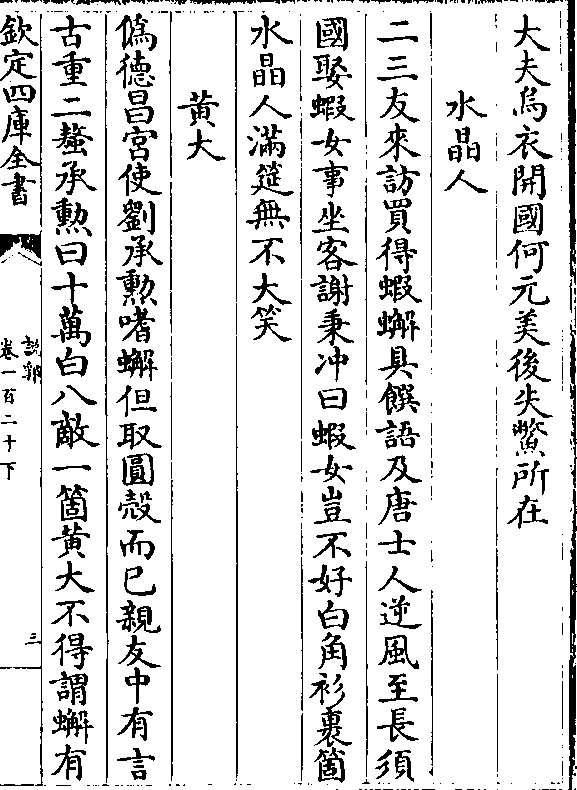 大夫烏衣開國何元美後失鱉所在
水晶人
二三友來訪買得蝦蠏具饌語及唐士人逆風至長須
國娶蝦女事坐客謝秉冲曰蝦女豈不好白角衫裏箇
水晶人滿筵無不大笑
黄大
偽德昌宮使劉承勲嗜蠏但取圓殼而已親友中有言
古重二螯承勲曰十萬白八敵一箇黄大不得謂蠏有
欽定四庫全書
說郛
卷一百二十下
三